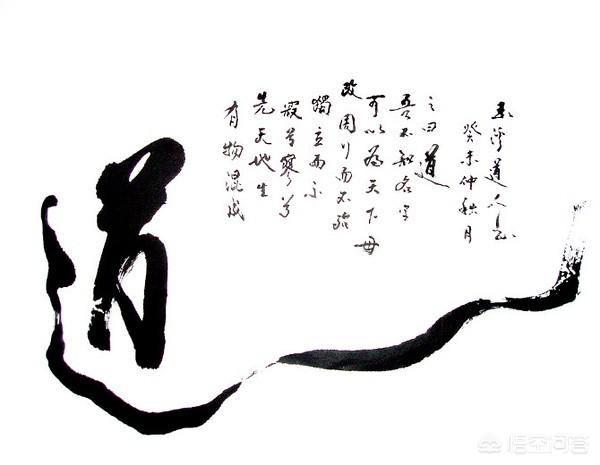 道
有物混成
先天地生
寂兮寥兮
獨立而不
改周行而不殆
可以為天下母
吾不知名字
之曰道
癸未仲秋月
道人
悟空问答